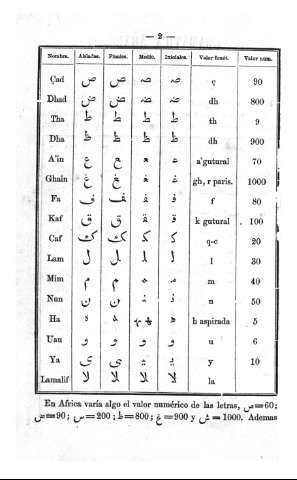 — 2 —
Nombre. Aisladas. Finales. Medio. Iniciales. Valor fonét. Valor num.
Çad ص ص صـ صـ ç 90
Dhad ض ض ضـ ضـ dh 800
Tha ط ط ط ط th 9
Dha ظ ظ ظ ظ dh 900
A'in ع ع ـعـ عـ a'gutural 70
Ghain غ غ ـغـ غـ gh, r paris. 1000
Fa ف ف ـفـ فـ f 80
Kaf ق ق ـقـ قـ k gutural 100
Caf ك ك كـ كـ q-c 20
Lam ل ل لـ لـ l 30
Mim م م ـمـ مـ m 40
Nun ن ن نـ نـ n 50
Ha ه ه ـهـ هـ h aspirada 5
Uau و و و و u 6
Ya ي ي يـ يـ y 10
Lamalif لا لا لا لا la
En Africa varía algo el valor numérico de las letras, ص=60;
ض=90; س=200; ظ=800; غ=900 y ش=1000. Ademas